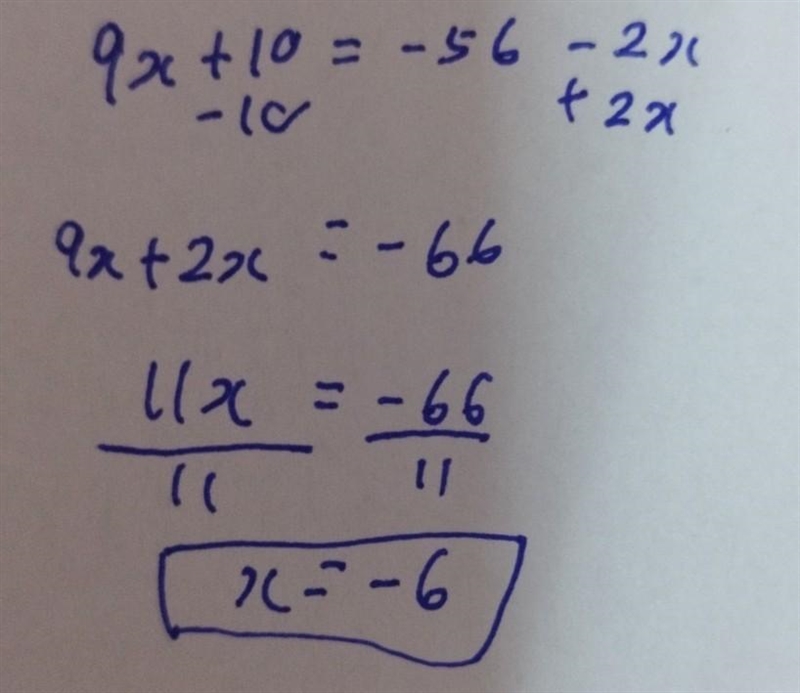 9x + 10 = -56 - 2x
-10 + 2x
9x + 2x = -66
11x = -66
11 11
x = -6